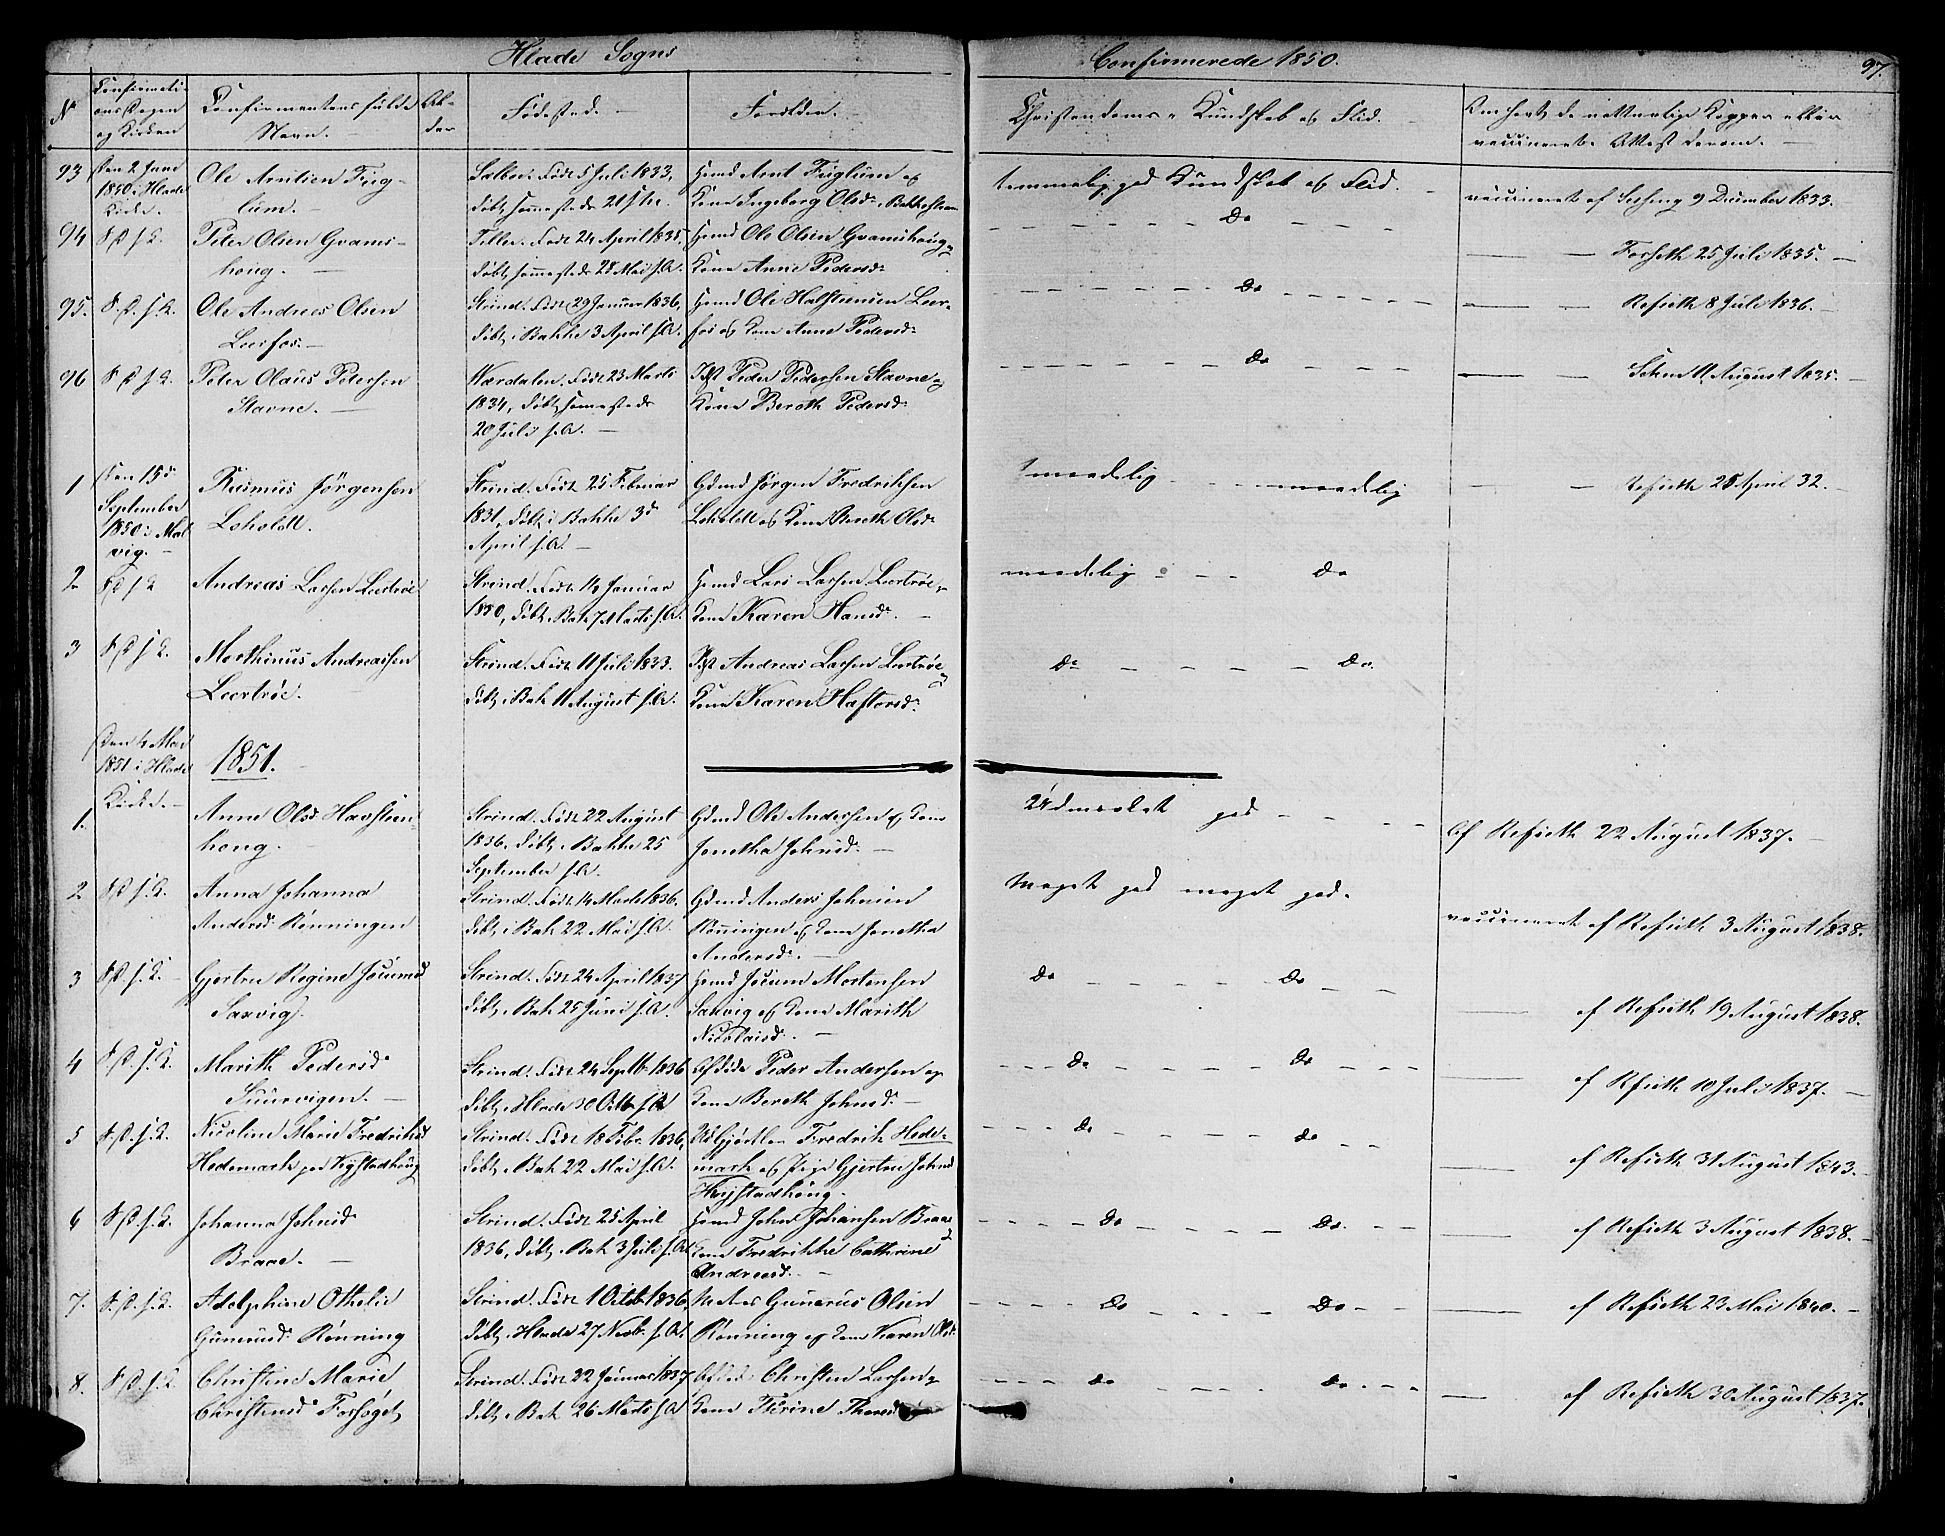 Hlade Sogns
Confirmerede 1850.
97.
No
Confirmati-
ons Dagen
og Kirken
Confirmantens fulde
Navn.
Al-
der
Fødested.
Forældre.
Christendoms-Kundskab og Flid.
vaccineret. Attest derom.
93 Den 2 Juni
1850 i Hlade
Kirke.
Ole Arntsen Fug-
lum.
Selbu. Født 5 Juli 1833,
døbt sammesteds 21 s.M.
Hmd Arnt Fuglum og
Kone Ingeborg Olsd.
temmelig god Kundskab og Flid.
vaccineret af 9 December 1833.
94 S. D. s. K.
Peter Olsen Grams-
houg.
Tiller. Født 24 April 1835,
døbt sammesteds 28 Mai s.A.
Hmd Ole Olsen Gramshoug og
Kone Anne Pedersd.
do
Forseth 25 Juli 1835.
95. S. D. s. K.
Ole Andreas Olsen
Leerfos.
Strind. Født 29 Januar 1836,
døbt i Bakke 3 April s.A.
Hmd Ole Halstensen Leer-
fos og Kone Anne Pedersd.
do
Refseth 8 Juli 1836.
96 S. D. s. K.
Peter Olaus Petersen
Stavne.
Værdalen. Født 23 Marts
1834, døbt sammesteds
20 Juli s.A.
Peder Pedersen Stavne og
Kone Bereth Pedersd.
do
11 August 1835.
1 Den 15de
September
1850 i Mal-
vig.
Rasmus Jörgensen
Loholdt.
Strind. Født 25 Februar
1831, døbt i Bakke 3d
April s.A.
Gdmd Jørgen Fredriksen
Loholdt og Kone Bereth Olsd.
maadelig maadelig
Refseth 25 April 32.
2 S. D. s. K.
Andreas Larsen Leertrøe
Strind. Født Januar
1830, døbt i Bak. 7 Marts s.A.
Hmd Lars Larsen Leertrøe og
Kone Karen Hansd.
maadelig do
3 S. D. s. K.
Morthinus Andreassen
Leertröe.
Strind. Født 11 Juli 1833.
døbt i Bak. 11 August s.A.
Andreas Larsen Leertrøe og
Kone Karen Haftorsd.
do do.
Den 4 Mai
1851 i Hlade
Kirke.
1851.
1.
Anne Olsd. Havsten-
houg.
Strind. Født 22 August
1836, døbt i Bakke 25
September s.A.
Gdmd Ole Andersen og Kone
Jonetha Johnsd.
Udmærket god
af Refseth 22 August 1837.
2 S. D. s. K.
Anna Johanna
Andersd. Rønningen
Strind. Født 14 Marts 1836.
døbt i Bak. 22 Mai s.A.
Gdmd Anders Johnsen
Rønningen og Kone Jonetha
Andersd.
Meget god meget god.
vaccineret af Refseth 3 August 1838.
3 S. D. s. K.
Gjertru Regine Jocumsd
Saxvig.
Strind. Født 24 April 1837
døbt i Bak. 25 Juni s.A.
Hmd Jocum Mortensen
Saxvig og Kone Marith
Nicolaisd.
do do
af Refseth 19 August 1838.
4 S. D. s. K.
Marith Pedersd.
Strind. Født 24 Septb. 1836
døbt i Hlade 30 Octb. s.A.
Afdøde Peder Andersen og
Kone Bereth Johnsd.
do do
af Refseth 10 Juli 1837.
5 S. D. s. K.
Nicoline Marie Fredriksd
Hedemark paa
Strind. Født 18 Febr. 1836,
døbt i Bak. 22 Mai s.A.
Fredrik Hede-
mark og Pige Gjertru Johnsd
do do
af Refseth 31 August 1843.
6 S. D. s. K.
Johanna Johnsd.
Braae.
Strind. Født 25 April
1836, døbt i Bak. 3 Juli s.A.
Hmd John Johansen Braae og
Kone Fredrikke Cathrine
Andreasd.
do do.
af Refseth 3 August 1838.
7. S. D. s. K.
Adolphine Othelie
Gunerusd. Rønning
Strind. Født 1 Octob. 1836,
døbt i Hlade 27 Novb. s.A.
Gunerus Olsen
Rønning og Kone Karen Olsd.
do do
af Refseth 23 Mai 1840.
8. S. D. s. K.
Christine Marie
Christensd. Forsøget
Strind. Født 22 Januar 1837
døbt i Bak. 26 Marts s.A.
Afdøde Christen Larsen og
Kone Thoresd.
do do.
af Refseth 30 August 1837.